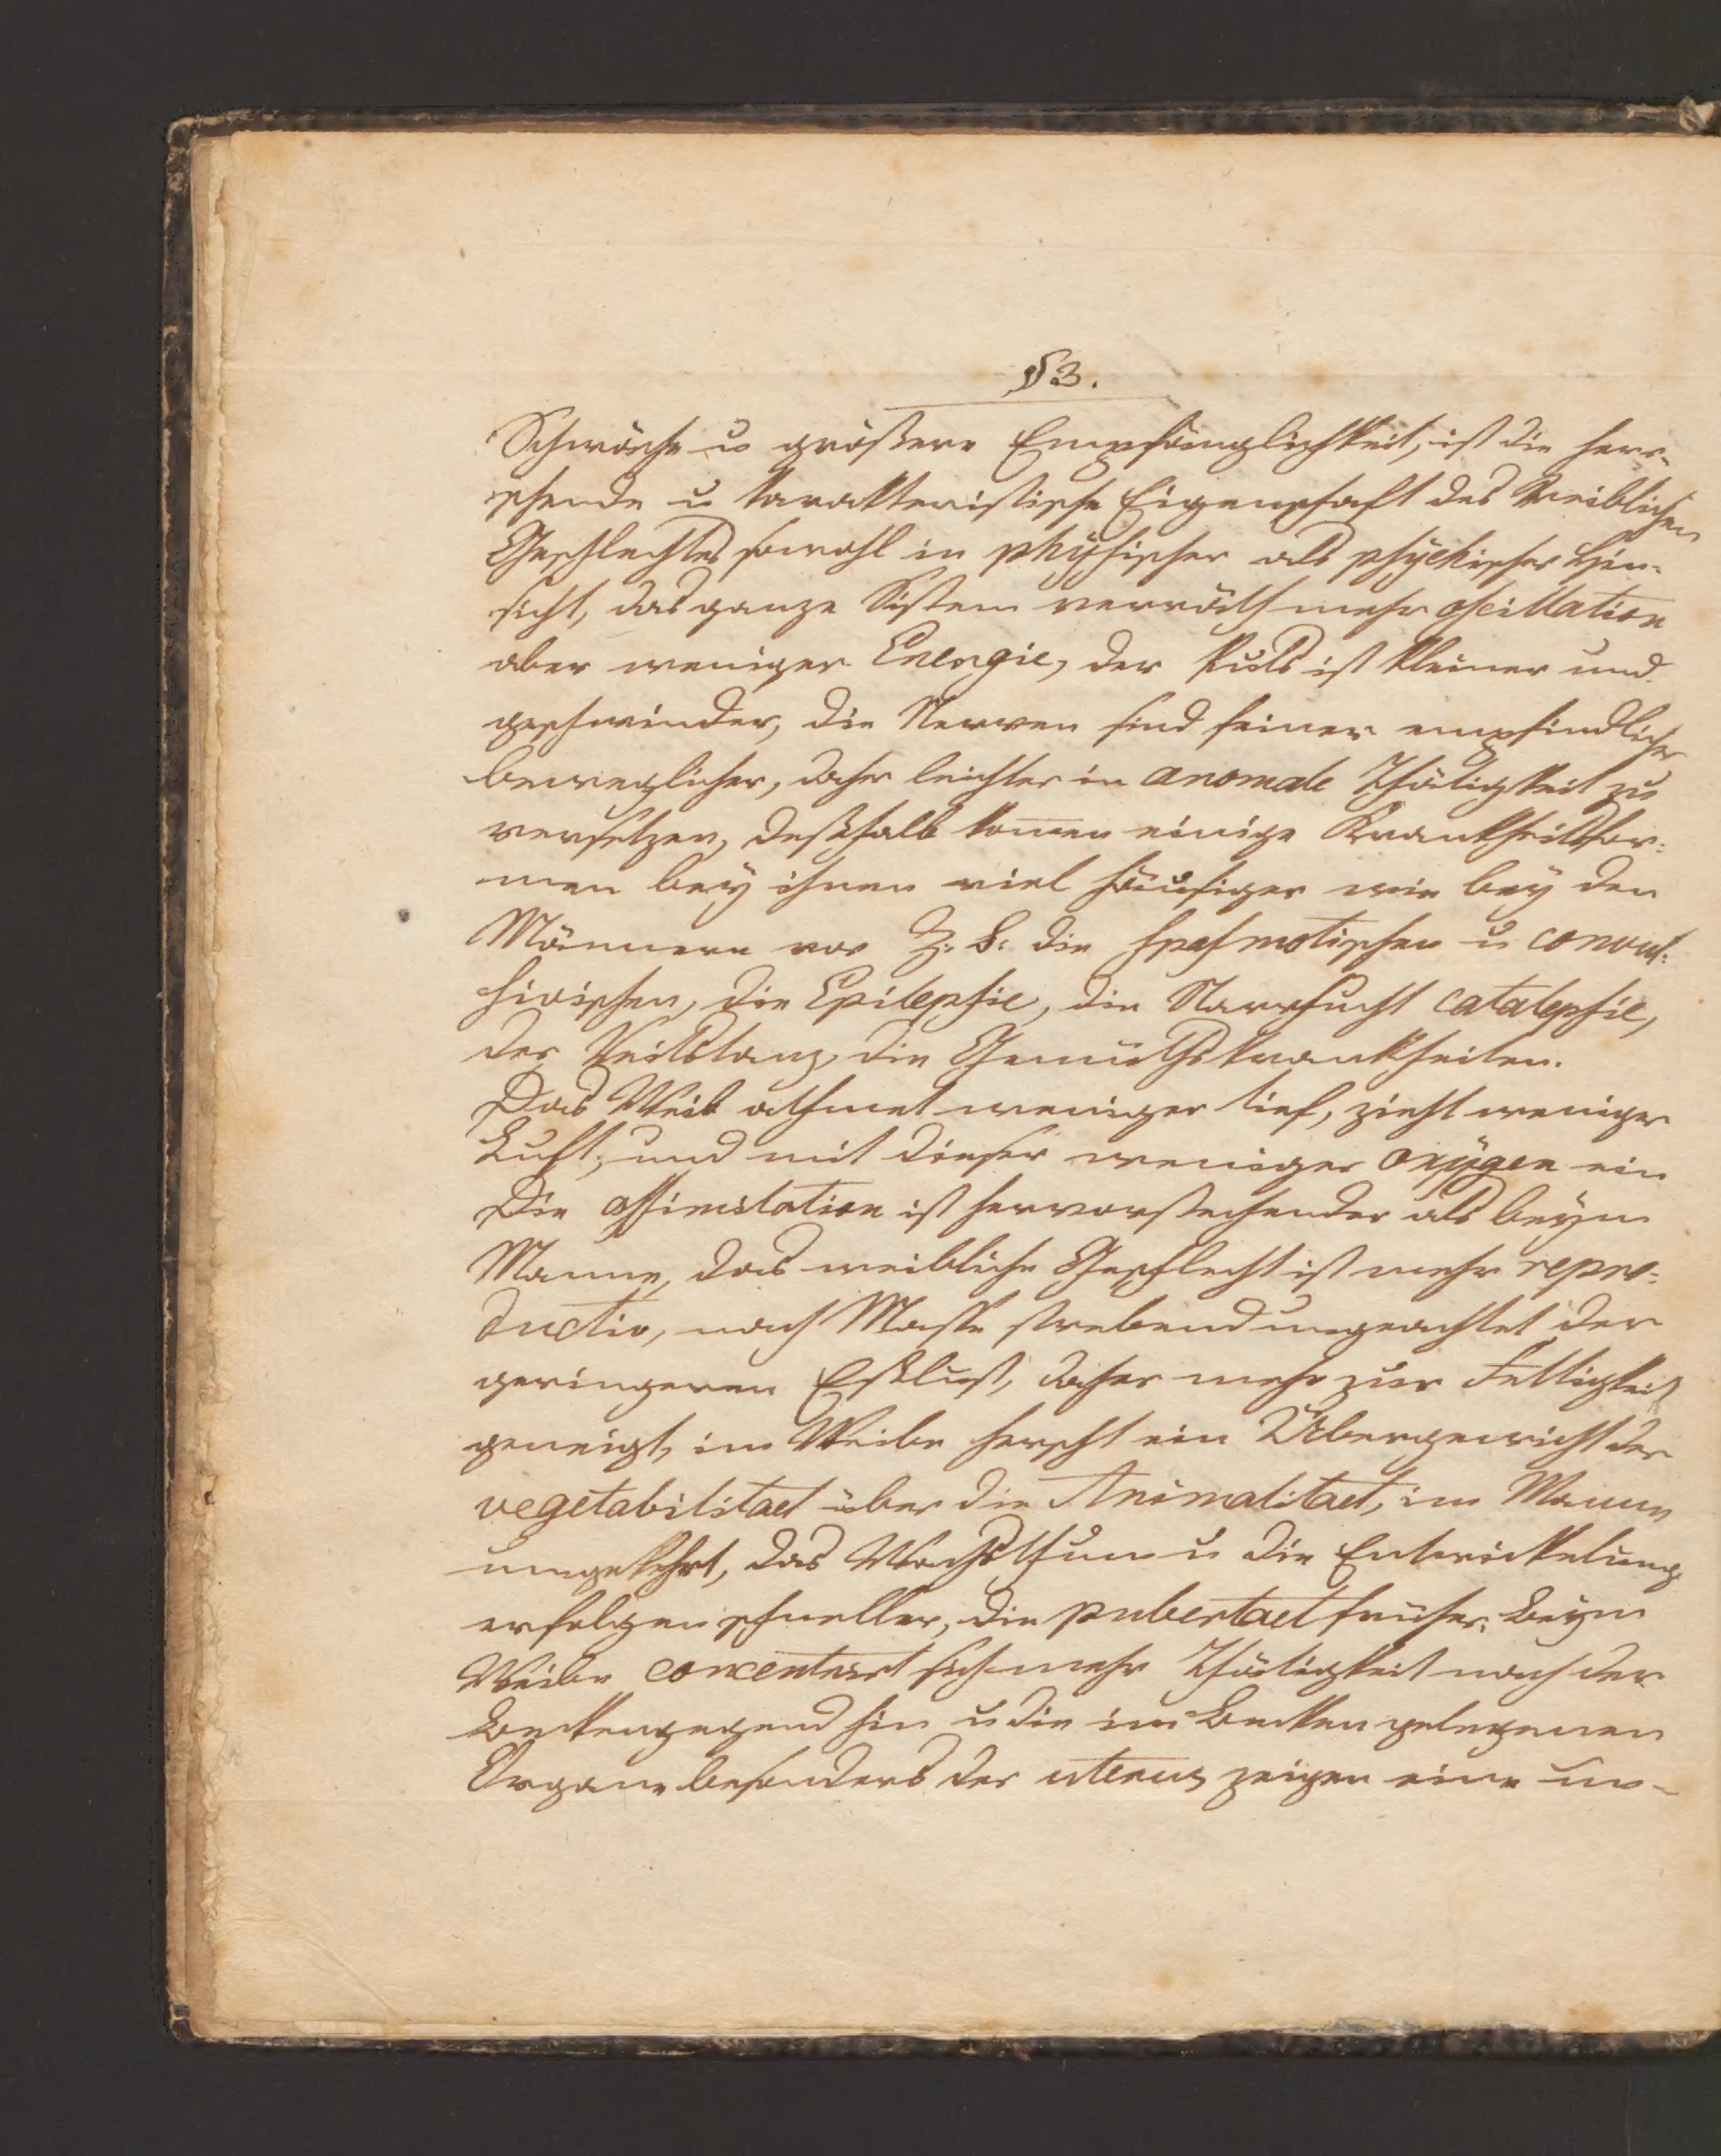 § 3.
Schwäche u größere Empfänglichkeit, ist die herr-
schende u karakteristische Eigenschaft des Weiblichen
Geschlechtes sowohl in physischer als psychischer Hin-
sicht, das ganze Sistem verräth mehr oscillation
aber weniger Energie, der Puls ist kleiner und
geschwinder, die Nerven sind feiner empfindlicher
beweglicher, daher leichter in anomale Thätigkeit zu
versetzen, deßhalb komen einige Krankheitsfor-
men bey ihnen viel häufiger wie bey den
Männern vor Z. B: die spasmotischen u convul-
sivischen, die Epilepsie, die Starrsucht catalepsie,
der Veitstanz, die Gemüthskrankheiten.
Das Weib athmet weniger tief, zieht weniger
Luft, und mit dieser weniger oxÿgen ein
Die assimilation ist hervorstechender als beym
Manne, das weibliche Geschlecht ist mehr repro-
ductiv, nach Masse strebend ungeachtet der
geringeren Eßlust, daher mehr zur Fettigkeit
geneigt, im Weibe herscht ein Übergewicht der
vegetabilitaet über die Animalitaet, im Manne
umgekehrt, das Wachsthum u die Entwickelung
erfolgen schneller, die pubertaet früher. Beym
Weibe concentrirt sich mehr Thätigkeit nach der
Beckengegend hin u die im Becken gelegenen
Organe besonders der uterus zeigen eine un-